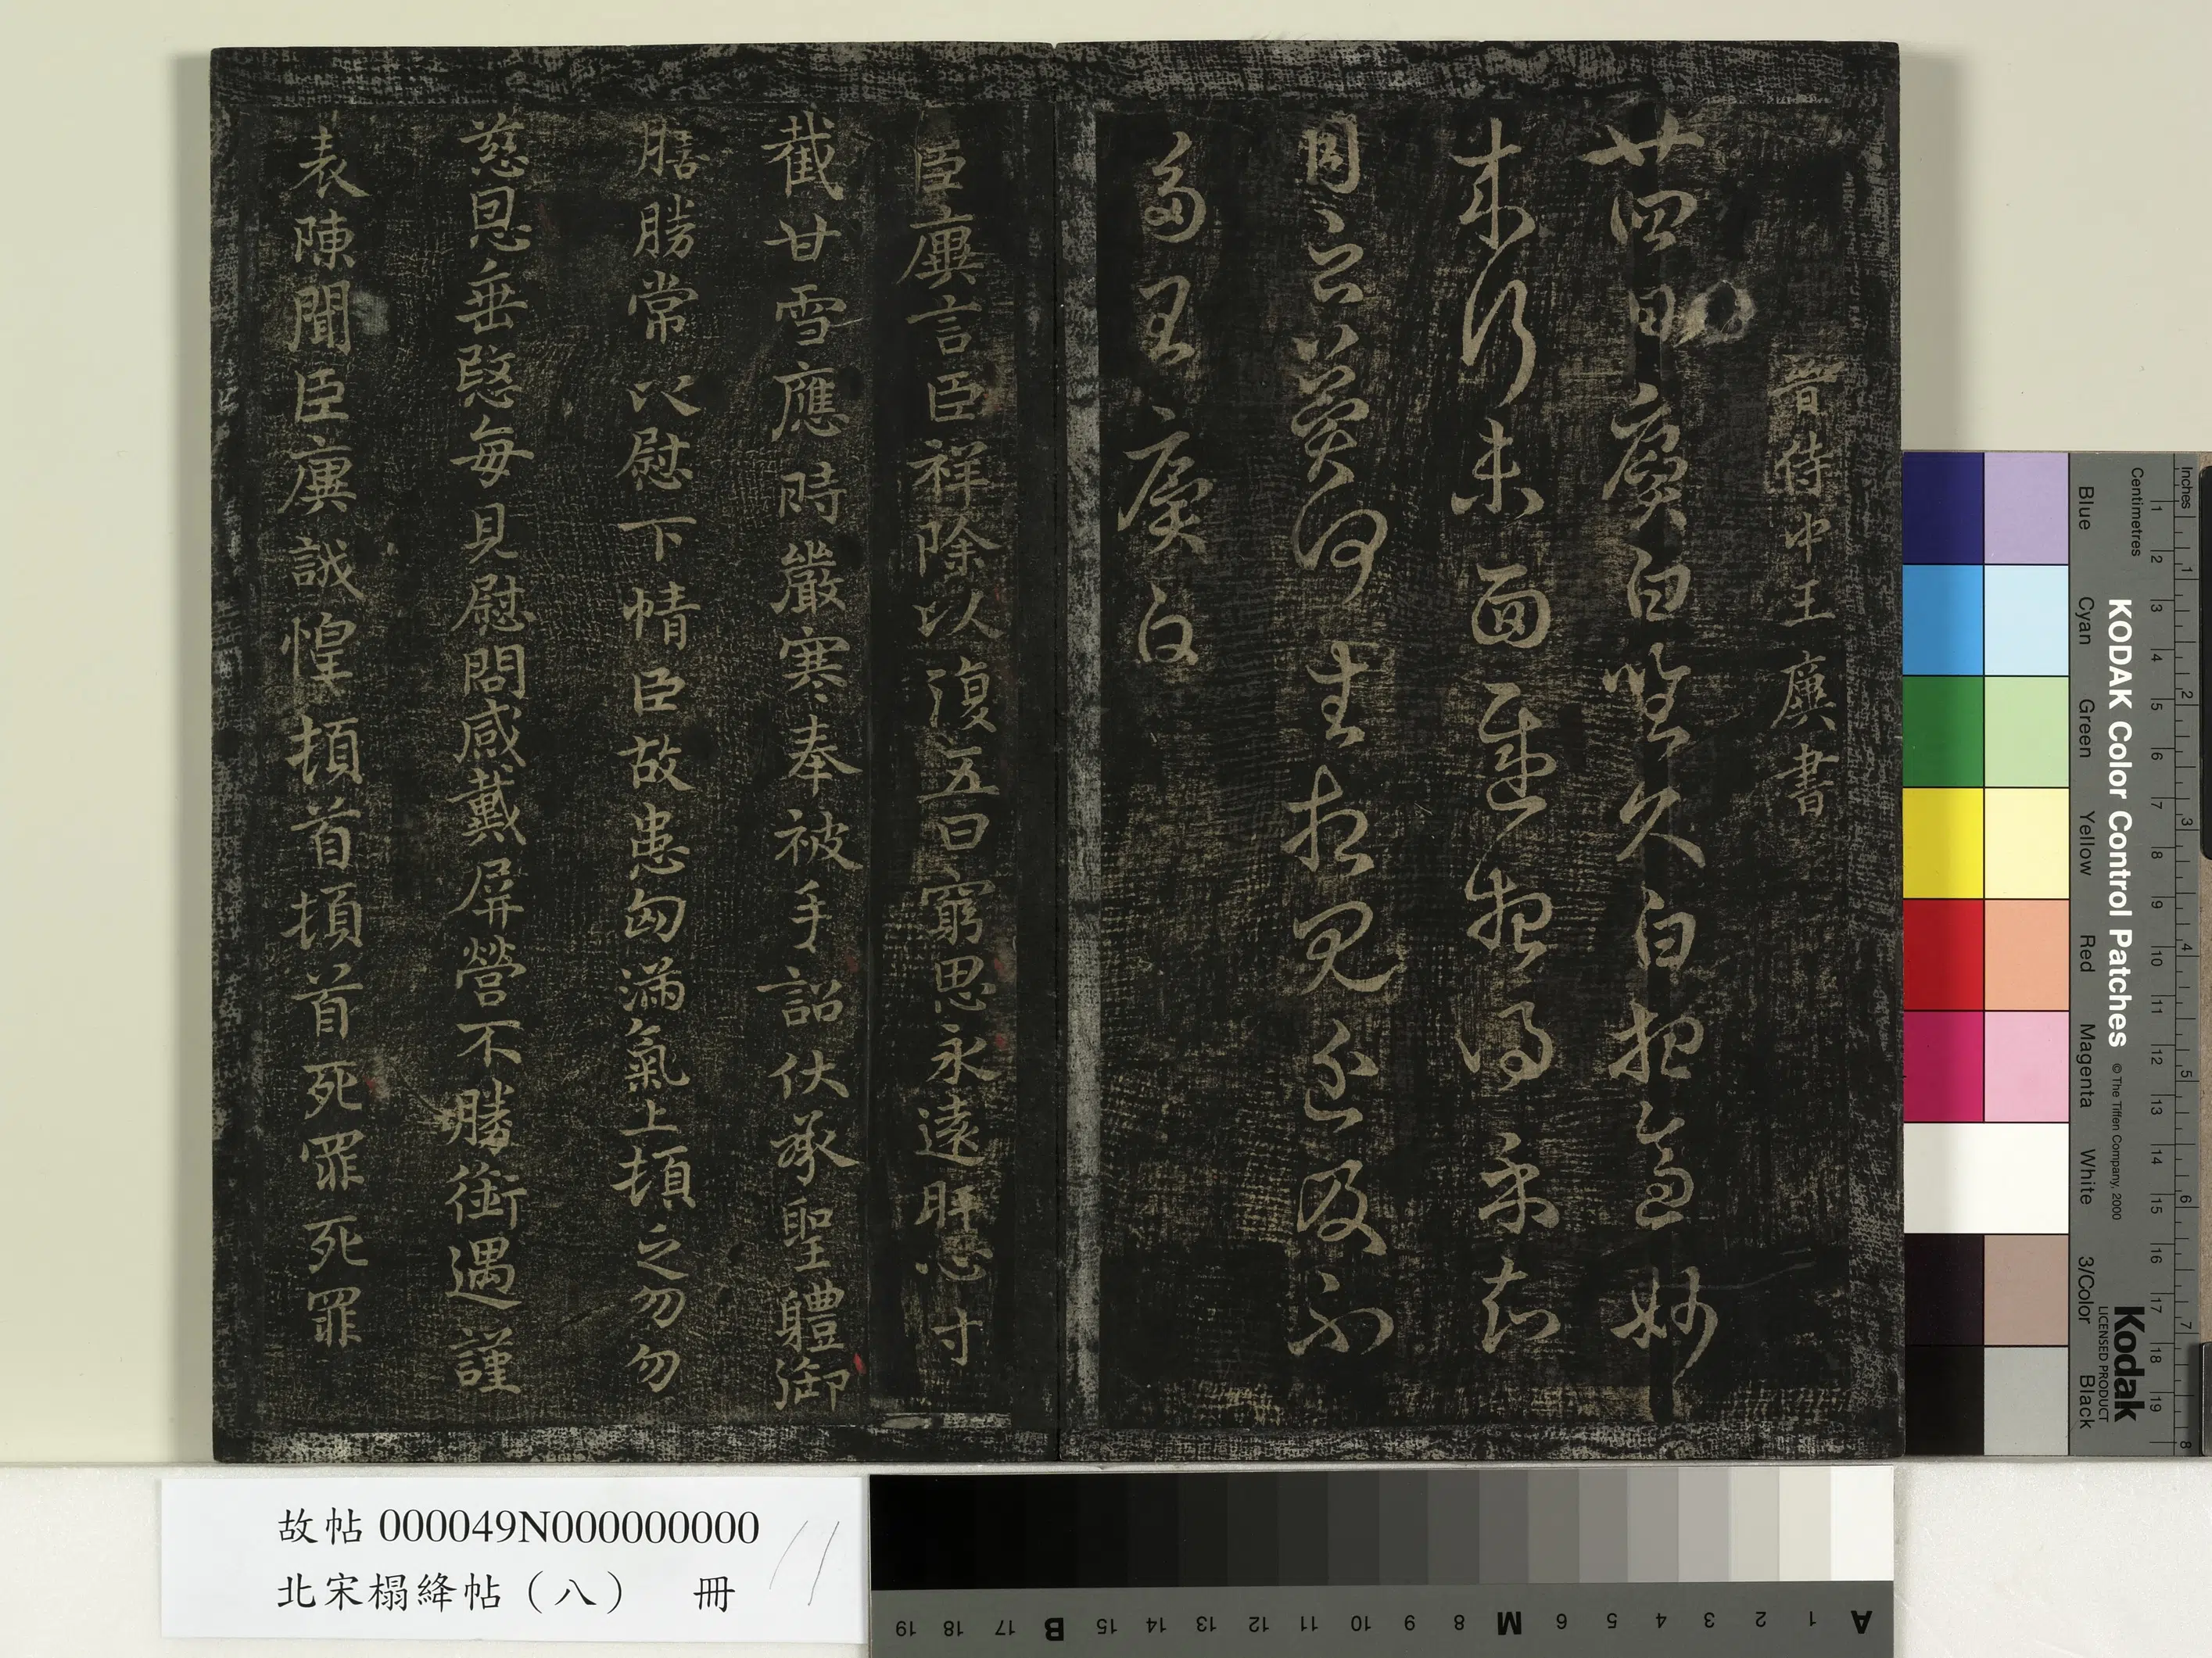 晉侍中王廙書
廿四日廙白昨久白想妙
未行未面遲想得示知
何生相見近及不
多王廙白
臣廙言臣祥除以復五日窮思永遠肝心寸
截甘雪應時嚴寒奉被手詔伏承聖體御
膳勝常以慰下情臣故患匈滿氣上頓乏勿勿
慈恩垂愍每見慰問感戴屏營不勝銜遇謹
表陳聞臣廙誠惶頓首頓首死罪死罪
故帖 000049N000000000
北宋榻絳帖（八） 冊
Inches 1 2 3 4 5 6 7 8
Centimetres 1 2 3 4 5 6 7 8 9 10 11 12 13 14 15 16 17 18 19
KODAK Color Control Patches © The Tiffen Company, 2000
Kodak
LICENSED PRODUCT
Blue Cyan Green Yellow Red Magenta White 3/Color Black
A 1 2 3 4 5 6 M 8 9 10 11 12 13 14 15 B 17 18 19